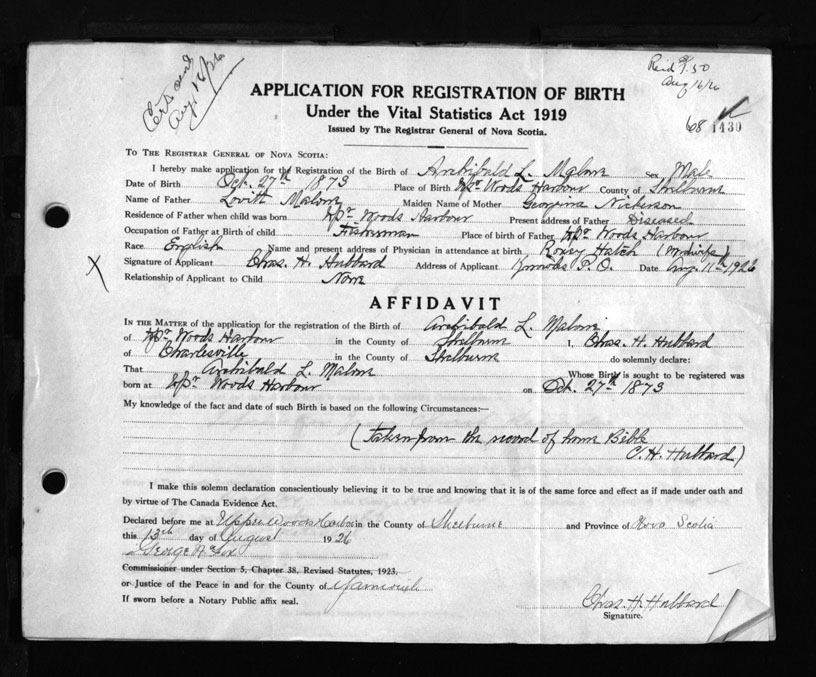 Aug 16/26
Aug 16/26
APPLICATION FOR REGISTRATION OF BIRTH
Under the Vital Statistics Act 1919
Issued by The Registrar General of Nova Scotia.
68 1430
TO THE REGISTRAR GENERAL OF NOVA SCOTIA:
I hereby make application for the Registration of the Birth of Archibald L. Malone Sex Male
Date of Birth Oct. 27th 1873 Place of Birth Upr Woods Harbour County of Shelburne
Name of Father Lovitt Malone Maiden Name of Mother Georgina Nickerson
Residence of Father when child was born Upr Woods Harbour Present address of Father Diseased
Occupation of Father at Birth of child Fisherman Place of birth of Father Upr Woods Harbour
Race English Name and present address of Physician in attendance at birth Roxey Hatch (Midwife)
X Signature of Applicant Chas. H. Hubbard Address of Applicant P.O. Date Aug. 11th 1926
Relationship of Applicant to Child None
AFFIDAVIT
IN THE MATTER of the application for the registration of the Birth of Archibald L. Malone
of Upr Woods Harbour in the County of Shelburne I, Chas. H. Hubbard
of Charlesville in the County of Shelburne do solemnly declare:
That Archibald L. Malone Whose Birth is sought to be registered was
born at Upr Woods Harbour on Oct. 27th 1873
My knowledge of the fact and date of such Birth is based on the following Circumstances:—
(Taken from the record of home Bible
C. H. Hubbard)
I make this solemn declaration conscientiously believing it to be true and knowing that it is of the same force and effect as if made under oath and
by virtue of The Canada Evidence Act.
Declared before me at Upper Woods Harbor in the County of Shelburne and Province of Nova Scotia
this 13th day of August 1926
George A Fox
Commissioner under Section 5, Chapter 38, Revised Statutes, 1923,
or Justice of the Peace in and for the County of Yarmouth
If sworn before a Notary Public affix seal.
Chas. H. Hubbard
Signature.